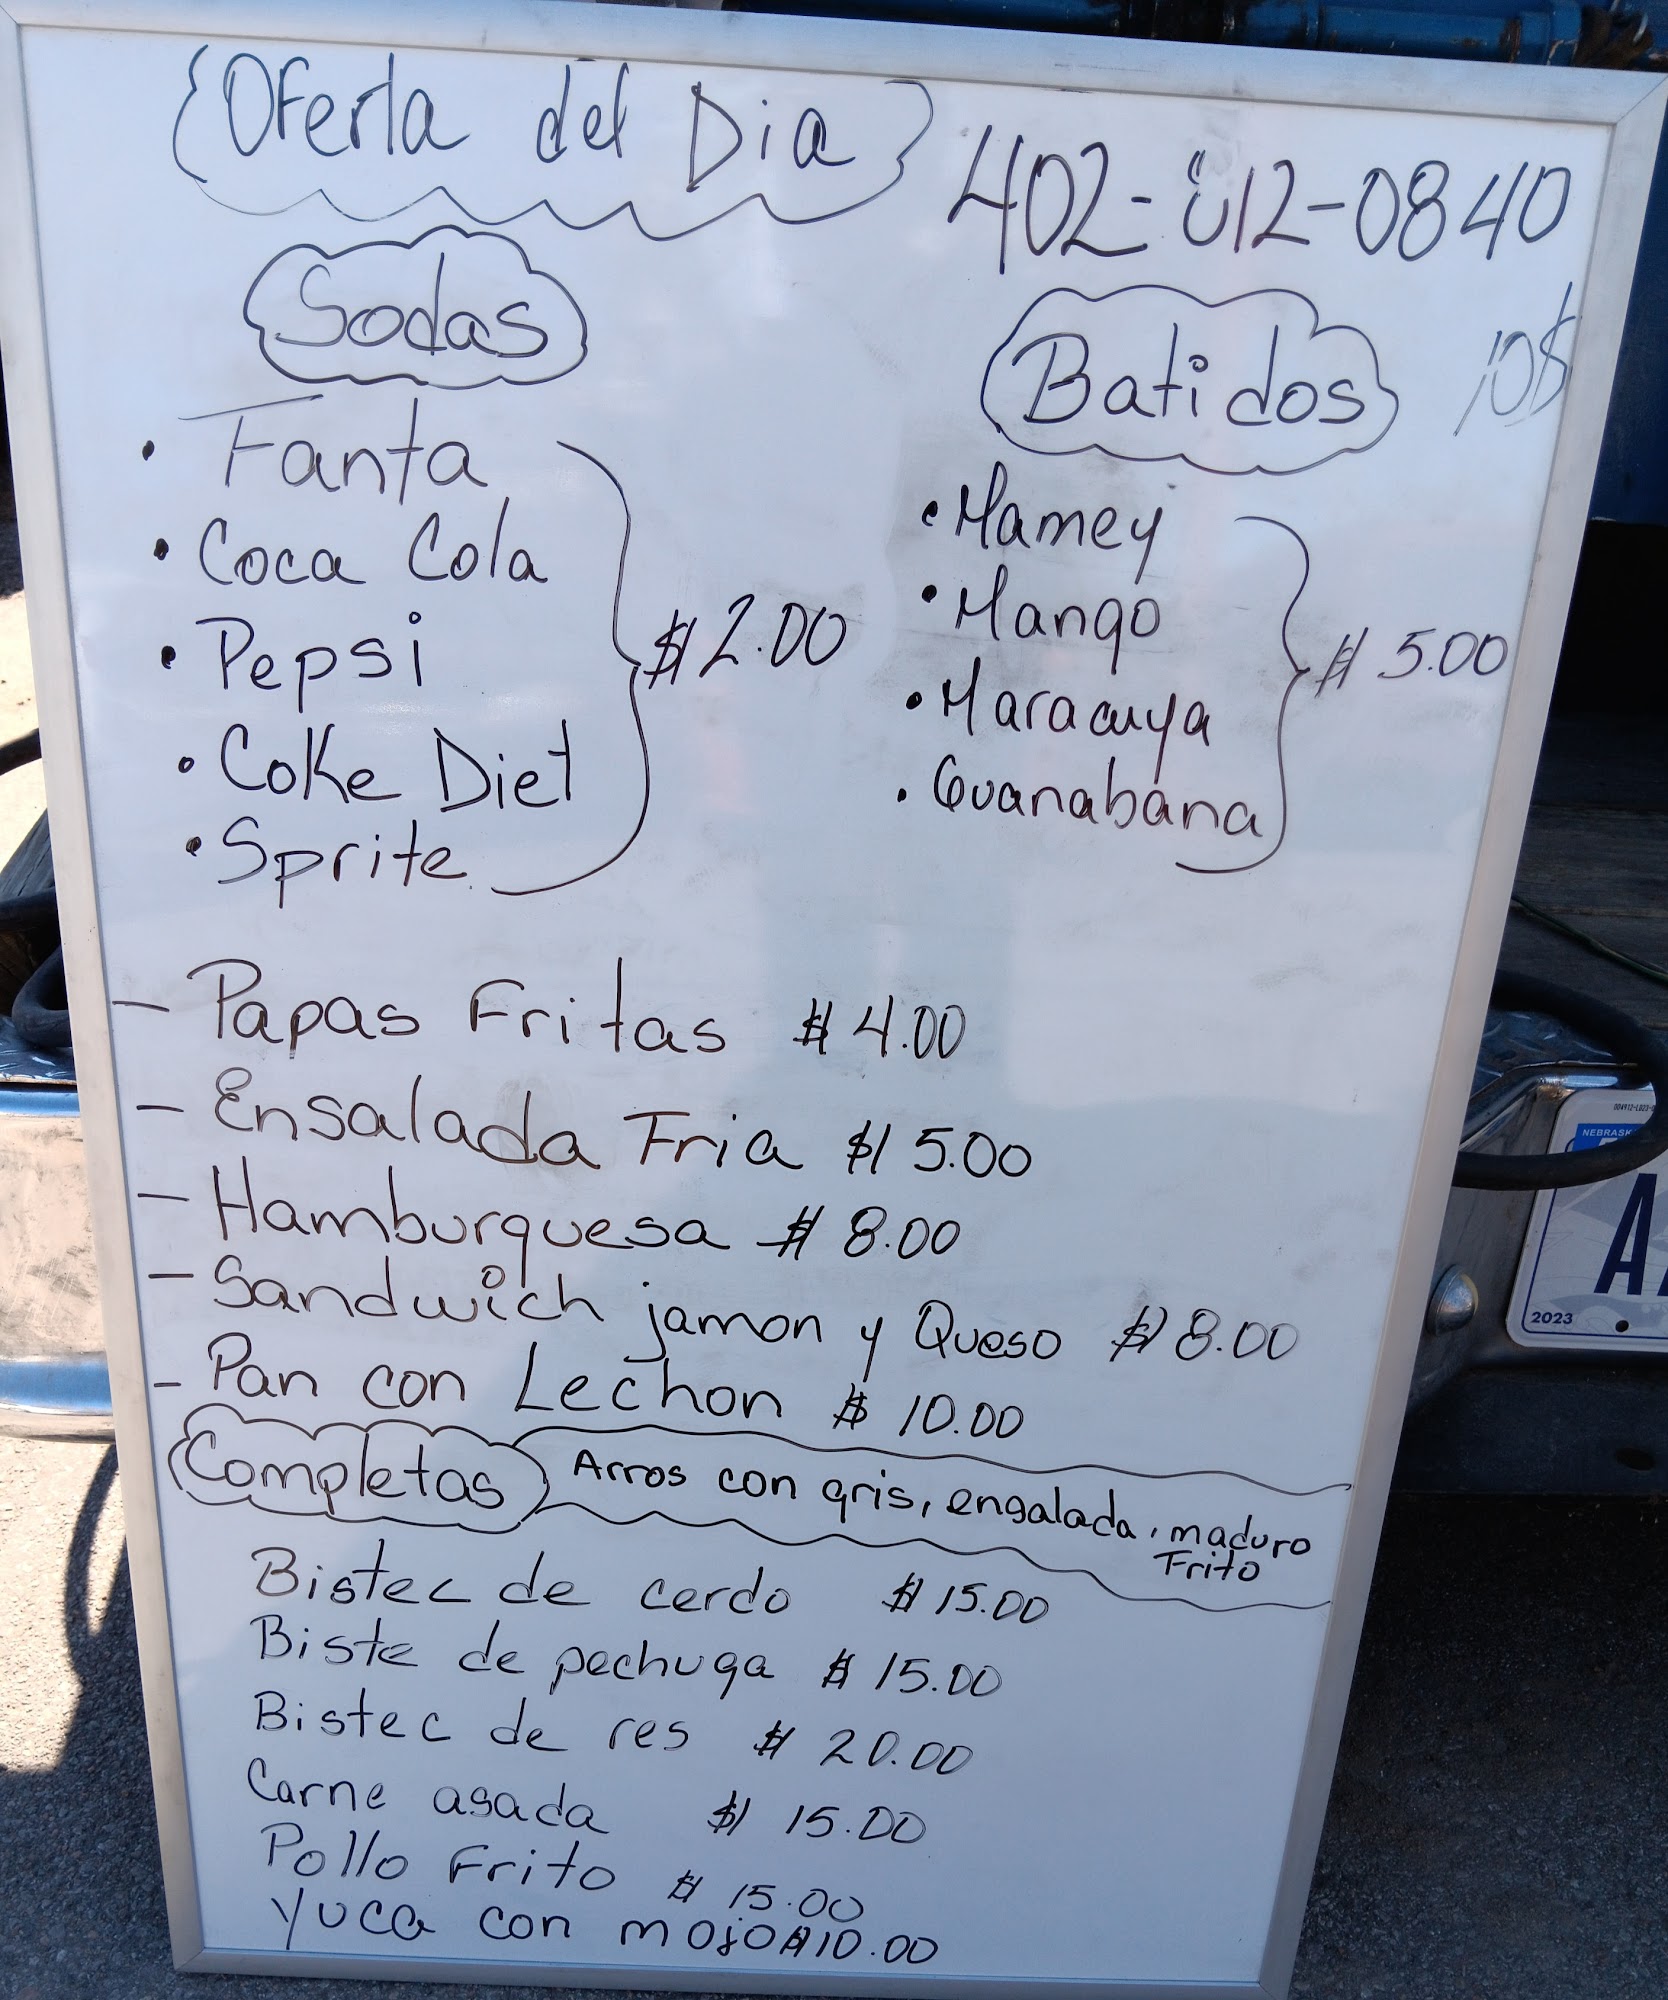 Oferta del Dia
402-812-0840
Sodas
• Fanta
• Coca Cola
• Pepsi
• Coke Diet
• Sprite
$2.00
Batidos 10$
• Mamey
• Mango
• Maracuya
• Guanabana
$ 5.00
- Papas Fritas $ 4.00
- Ensalada Fria $ 5.00
- Hamburguesa $ 8.00
- Sandwich jamon y Queso $ 8.00
- Pan con Lechon $ 10.00
Completas Arros con gris, engalada, maduro
Frito
Bistec de cerdo $ 15.00
Biste de pechuga $ 15.00
Bistec de res $ 20.00
Carne asada $ 15.00
Pollo Frito $ 15.00
Yuca con mojo $10.00
NEBRASK
A
2023